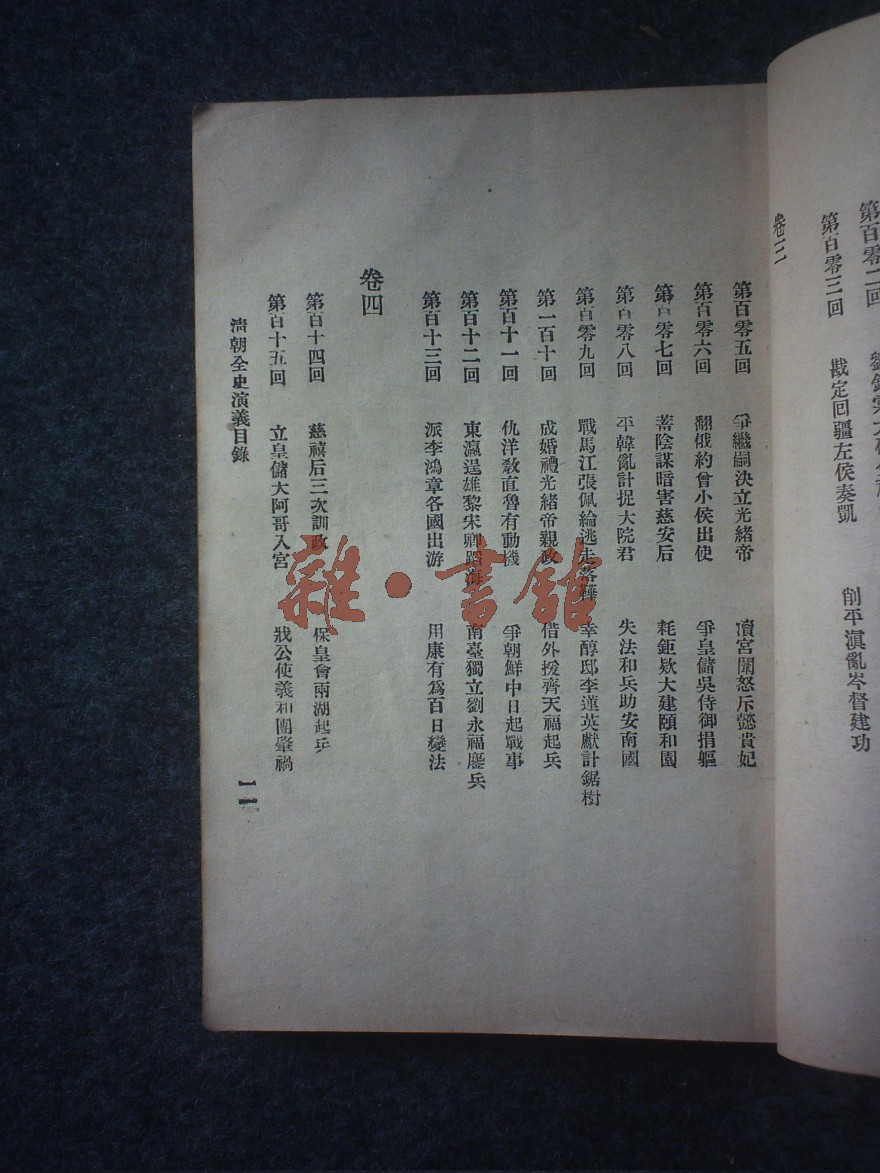 卷三
第百零三回　戡定回疆左侯奏凱　削平滇亂岑督建功
第百零五回　爭繼嗣決立光緒帝　瀆宮闈怒斥懿貴妃
第百零六回　翻俄約曾小侯出使　爭皇儲吳侍御捐軀
第百零七回　蓄陰謀暗害慈安后　耗鉅欵大建頤和園
第百零八回　平韓亂計捉大院君　失法和兵助安南國
第百零九回　戰馬江張佩綸逃走落韡　幸醇邸李蓮英獻計鋸樹
第一百十回　成婚禮光緒帝親政　借外援齊天福起兵
第百十一回　仇洋敎直魯有動機　爭朝鮮中日起戰事
第百十二回　東瀛逞雄黎宋卿蹈海　南臺獨立劉永福鏖兵
第百十三回　派李鴻章各國出游　用康有爲百日變法
卷四
第百十四回　慈禧后三次訓政　保皇會兩湖起乒
第百十五回　立皇儲大阿哥入宮　戕公使義和團肇禍
淸朝全史演義目錄
一一
雜·書館